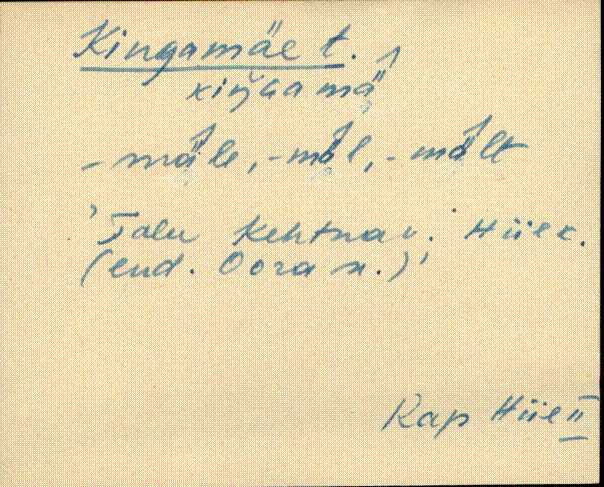 Kingamäe t.
kiŋGamä̀
-mäle, -mäl, -mält
'Talu Kehtna v. Hiie k.
(end. Oora m.)'
Rap Hiie II